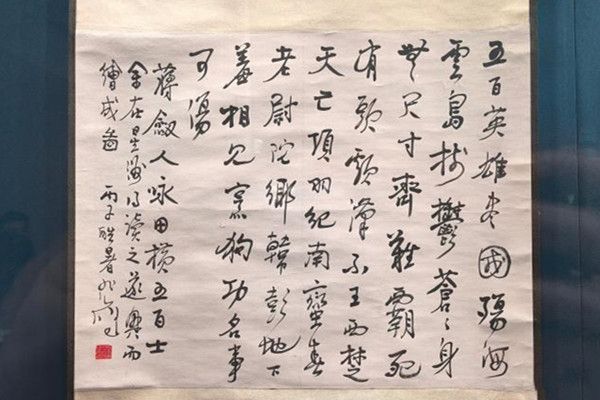 五百英雄盡國殤海
雲島樹鬱蒼〻身
無尺寸齊難霸死
有頭顱漢不王西楚
天亡項羽紀南蠻春
老尉陀鄉韓彭地下
羞相見烹狗功名事
可傷
蔣劍人詠田橫五百士
余在星海得讀之遂興而
繪成圖 丙子酷暑悲鴻